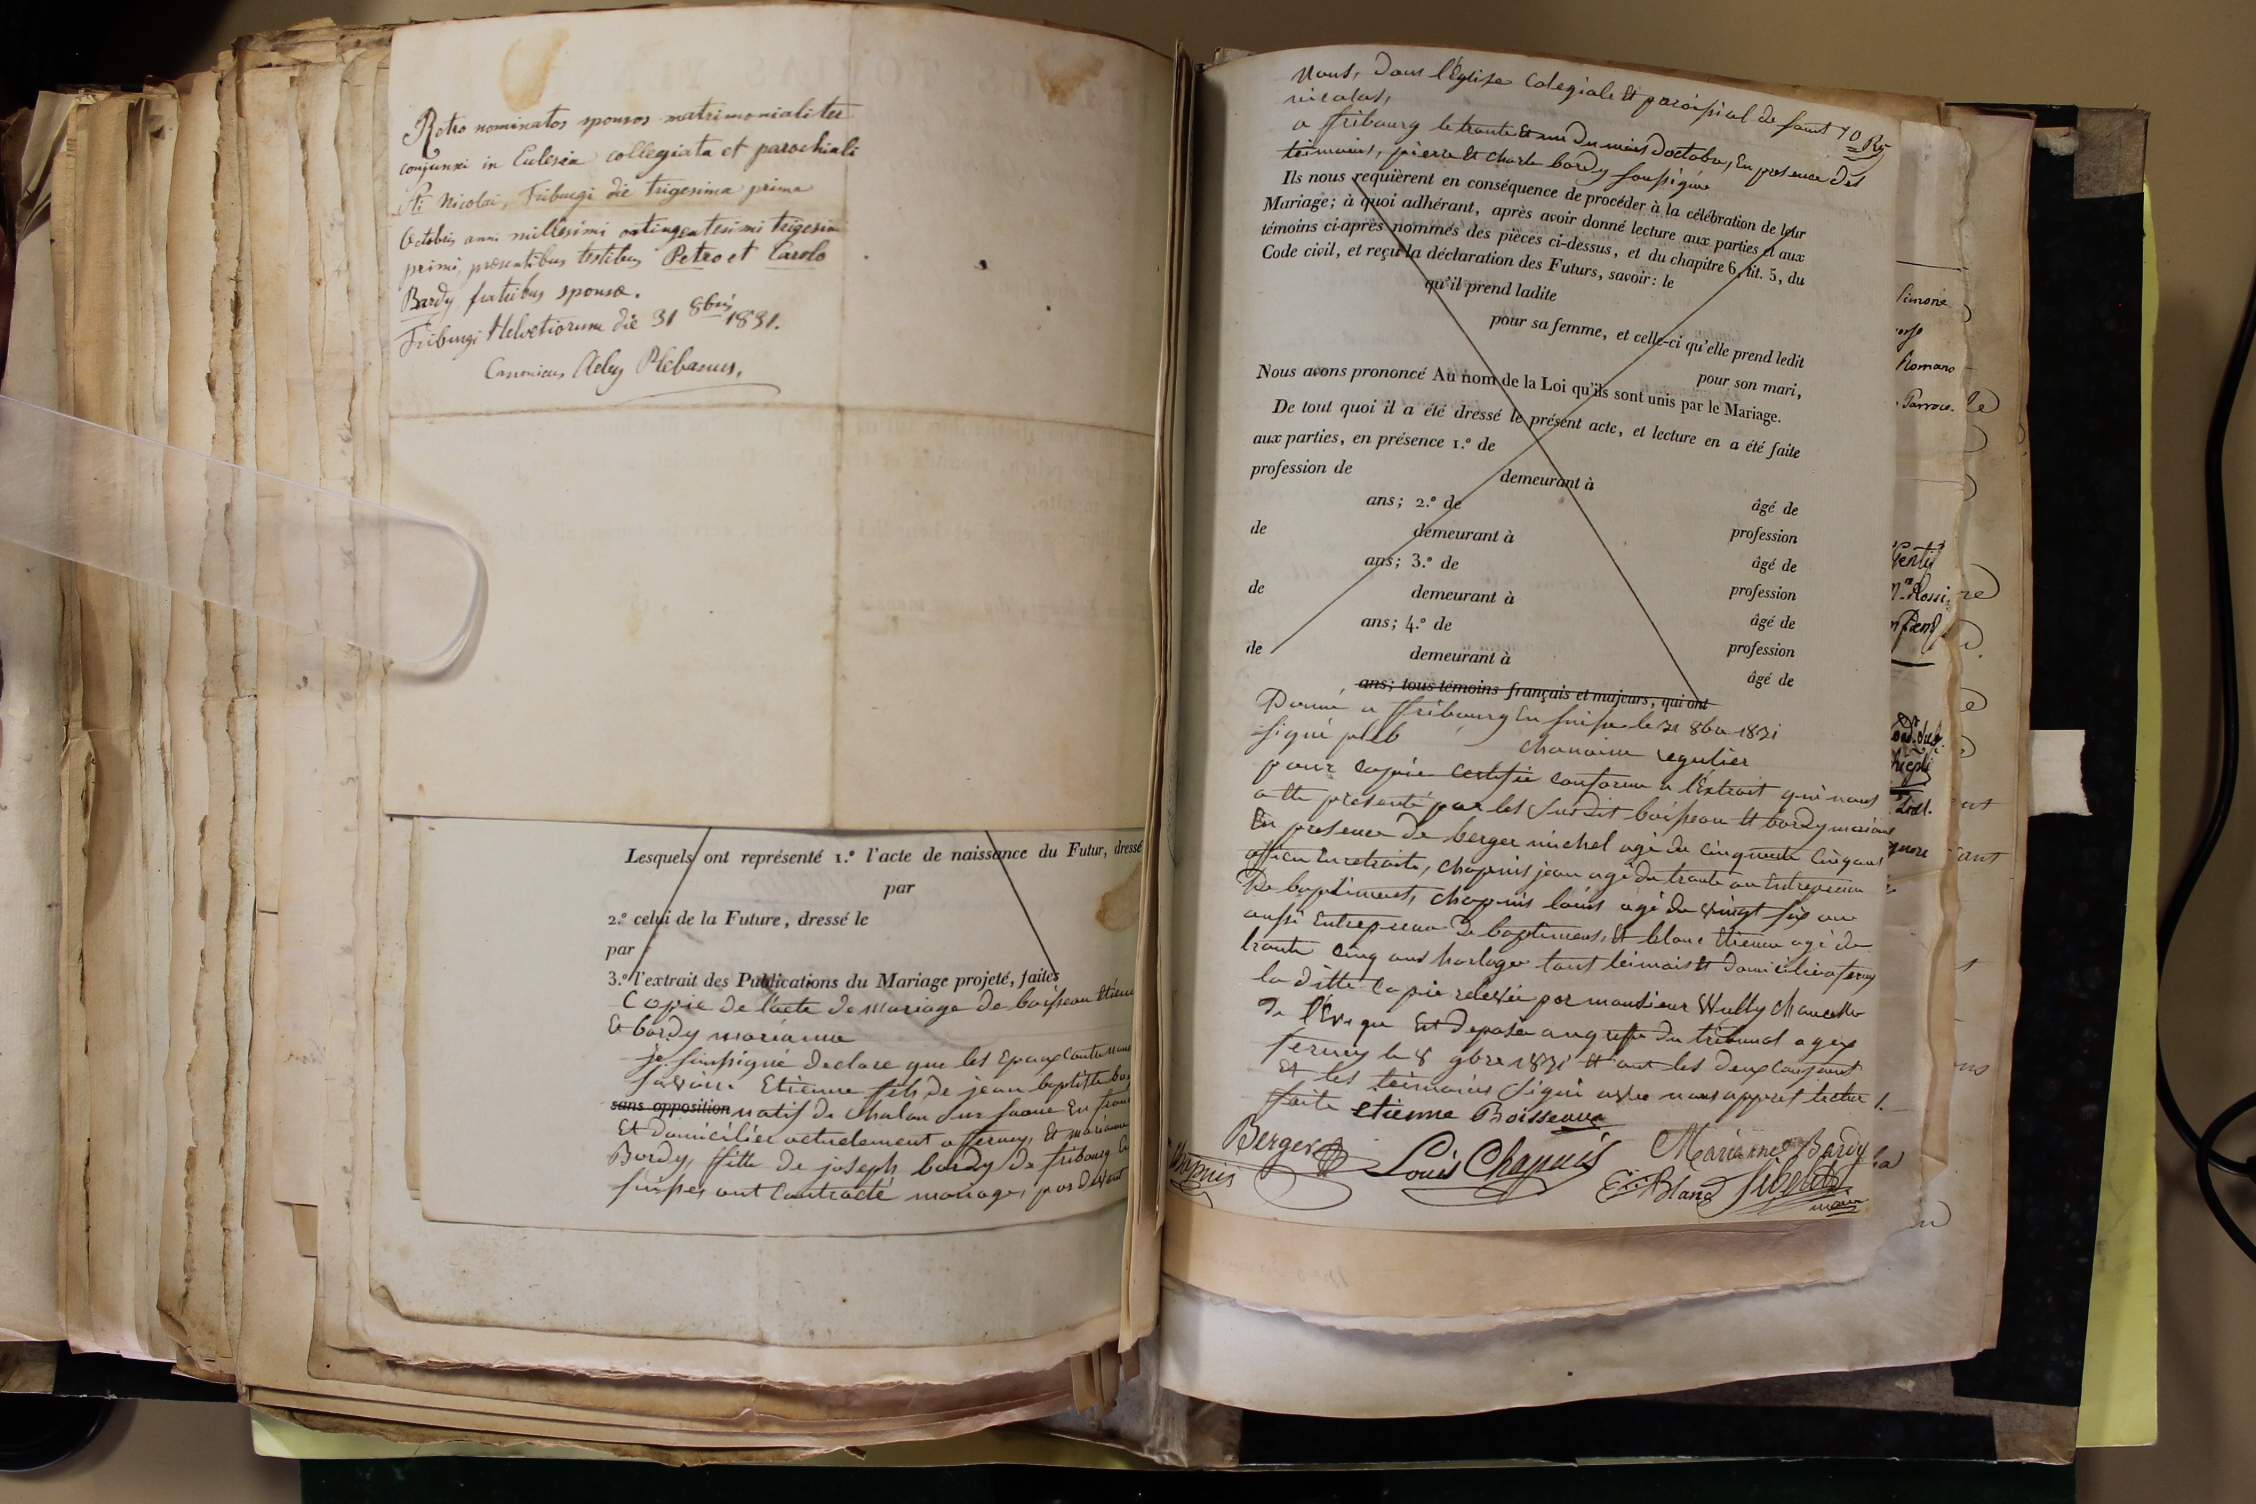 Retro nominatos sponsos matrimonialiter
conjunxi in Eclesia collegiata et parochiali
Sti Nicolai, Friburgi die trigesima prima
Octobris anni millesimi octingentesimi trigesimi
primi, præsentibus testibus Petro et Carolo
Bardy fratribus sponsæ.
Friburgi Helvetiorum die 31 8bris 1831.
Canonicus Aeby Plebanus.
Lesquels ont représenté 1.º l'acte de naissance du Futur, dressé
par
2.º celui de la Future, dressé le
par
3.º l'extrait des Publications du Mariage projeté, faites
Copie de l'acte de mariage de boisseau Etienne
Et bardy marianne
je soussigné declare que les Epoux
savoir. Etienne fils de jean baptiste
sans opposition natif de chalon sur saone En
Et domicilier actuelement a ferney, Et marianne
Bardy, fille de joseph bardy de fribourg En
suisses ont contracté mariage, par devant
Nous, dans l'Eglise colegiale Et paroissial de saint
nicolas,
a ffribourg le trante Et un du mois doctobre, En presence des
temoins, pierre Et charle bardy soussigné
Ils nous requièrent en conséquence de procéder à la célébration de leur
Mariage; à quoi adhérant, après avoir donné lecture aux parties et aux
témoins ci-après nommés des pièces ci-dessus, et du chapitre 6, tit. 5, du
Code civil, et reçu la déclaration des Futurs, savoir: le
qu'il prend ladite
pour sa femme, et celle-ci qu'elle prend ledit
pour son mari,
Nous avons prononcé Au nom de la Loi qu'ils sont unis par le Mariage.
De tout quoi il a été dressé le présent acte, et lecture en a été faite
aux parties, en présence 1.º de
profession de
demeurant à
âgé de
ans; 2.º de
profession
de
demeurant à
âgé de
ans; 3.º de
profession
de
demeurant à
âgé de
ans; 4.º de
profession
de
demeurant à
âgé de
ans; tous témoins français et majeurs, qui ont
Donné a ffribourg En suisse le 31 8bre 1831
signé pleb chanoine regulier
pour copie certifié conforme a l'Extrait qui nous
a Ete presenté par les susdit boisseau Et bardy marianne
En presence de berger michel agé de cinquante cinq ans
officier En retraite, chapuis jean agé de trante an Entrepreneur
De baptiments, chapuis louis agé de vingt six ans
aussi Entrepreneur de baptiments, Et blanc Etienne agé de
trante cinq ans horloger tout teimoins Et domicilié a ferney
la ditte copie relevée par monsieur Wully chancelier
de l'Eveque Est deposée au grefe du tribunal a gex
ferney le 8 9bre 1831 Et ont les deux conjoint
Et les teimoins signé avec nous appret lecture
faite etienne Boisseaux
Berger Louis Chapuis Marianne Bardy
Chapuis Eti. Blanc
maire
Simone
Romano
Parroco.
Rossi